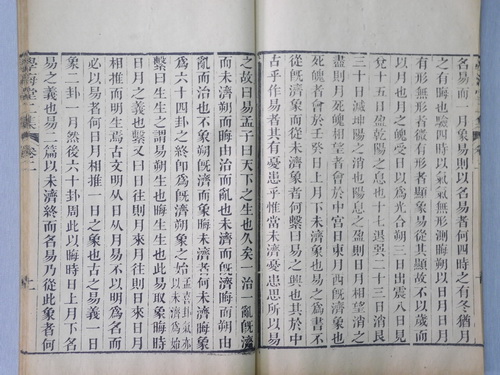 名易而一月象易則以名易者何四時之有冬猶月
之有晦也驗四時以氣氣無形測晦朔以日月日月
有形無形者微有形者顯象易從其顯故不以歲而
以月也月之魄受日以為光合朔三日出震八日見
兌十五日盈乾陽之息也十七退巽二十三日消艮
三十日滅坤陽之消也陽息之盈日月相望消之
盡則月死魄相望者會於中宮日東月西旣濟象也
死魄者會於壬癸日上月下未濟象也易之為書不
從旣濟而從未濟者何繫曰易之興也其於中
古乎作易者其有憂患乎惟當未濟有憂患所以易
之故曰易孟子曰天下之生也久矣一治一亂旣濟
而未濟朔而晦由治而亂也未濟而旣濟晦而朔由
亂而治也不象朔旣濟而象晦未濟者何未濟晦象
為六十四卦之終卽為旣濟朔象之始孟喜卦氣亦以未濟為始
繫曰生生之謂易晦生朔生生也此易取象晦時
日月之義也繫又曰日往則月來月往則日來日月
相推而明生焉古文明从日从月易不以明為名而
必以易者何日月相推一日之象也古之易義一日
象二卦一月然後六十卦周此以晦時日上月下名
易之義也易二篇以未濟終而名易乃從此象者何
學海堂二集
卷二
十一